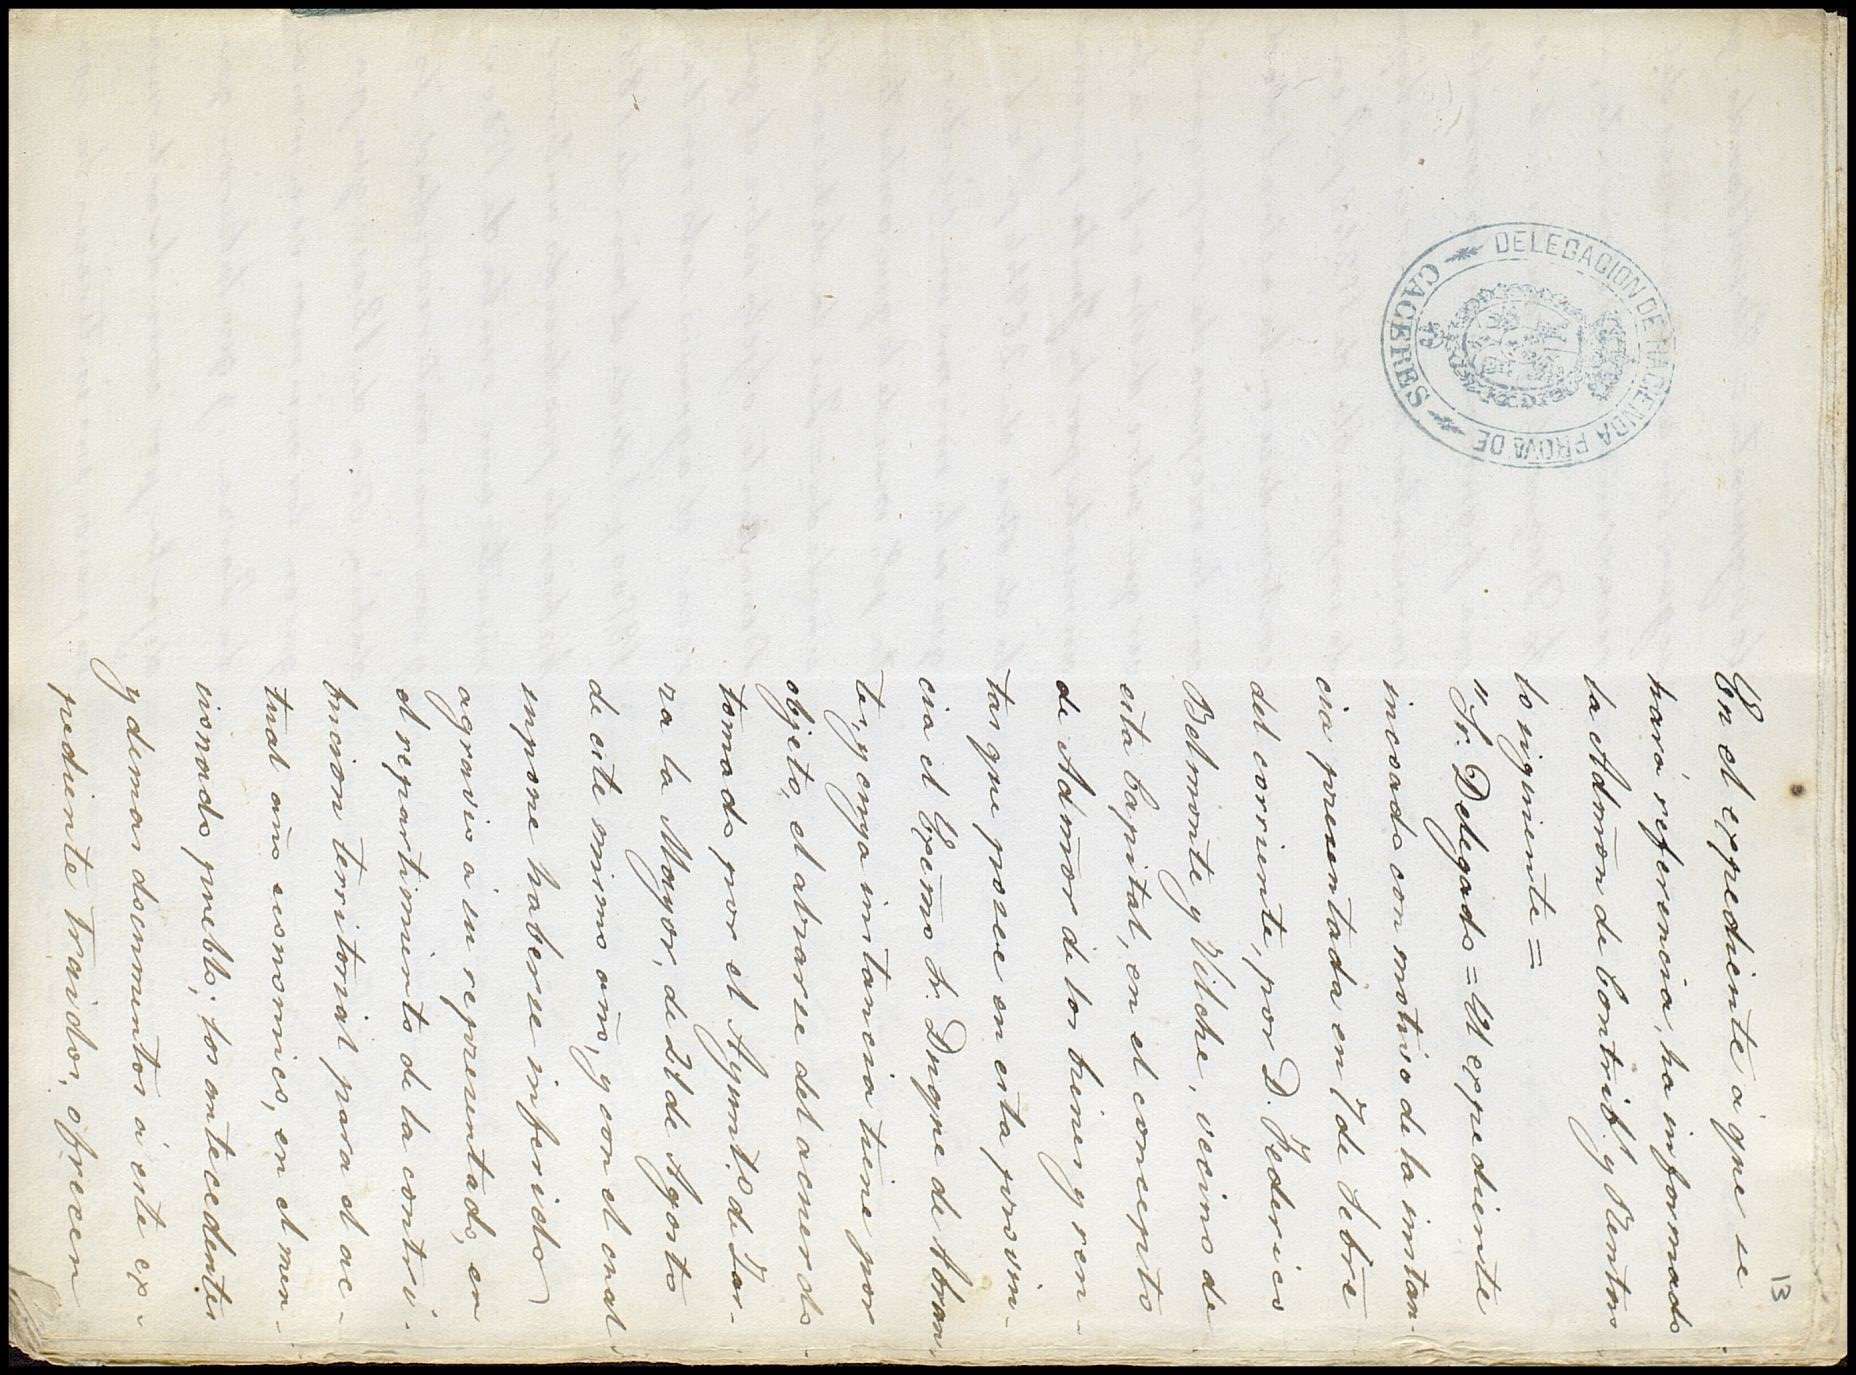 13
DELEGACION DE HACIENDA PROVA DE
CACERES
En el expediente á que se
hará referencia, ha informado
la Admon de Contrib.s y Rentas
lo siguiente =
"Sr. Delegado = El expediente
incoado con motivo de la instan-
cia presentada en 7 de Sebre
del corriente, por D. Federico
Belmonte y Vilche, vecino de
esta Capital, en el concepto
de Admor de los bienes y ren-
tas que posee en esta provin-
cia el Excmo Sr. Duque de Abran-
tes, y cuya instancia tiene por
objeto, el alzarse del acuerdo
tomado por el Ayunt.o de Zar-
za la Mayor, de 21 de Agosto
de este mismo año, y con el cual
supone haberse inferido
agravio a su representado, en
el repartimiento de la contri-
bucion territorial para el ac-
tual año economico, en el men-
cionado pueblo; los antecedentes
y demas documentos á este ex-
pediente traidos, ofrecen